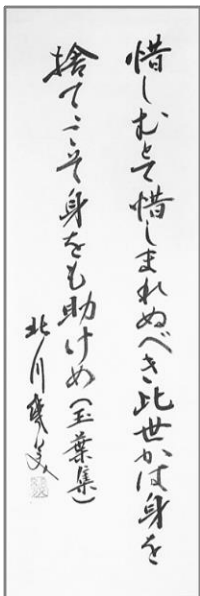 惜しむとて惜しまれぬべき此世かは身を
捨てこそ身をも助けめ(玉葉集)
北川